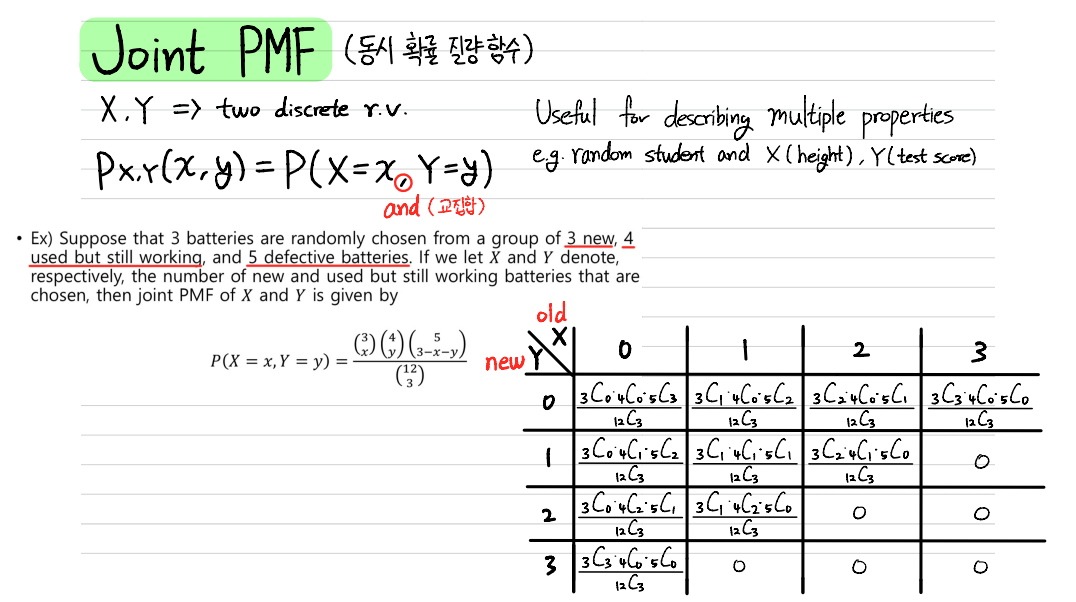 Joint PMF (동시 확률 질량 함수)
X, Y => two discrete r.v.
Useful for describing multiple properties
e.g. random student and X(height), Y(test score)
Px,Y(x,y) = P(X=x, Y=y)
and (교집합)
• Ex) Suppose that 3 batteries are randomly chosen from a group of 3 new, 4
used but still working, and 5 defective batteries. If we let X and Y denote,
respectively, the number of new and used but still working batteries that are
chosen, then joint PMF of X and Y is given by
P(X = x, Y = y) = \frac{\binom{3}{x}\binom{4}{y}\binom{5}{3-x-y}}{\binom{12}{3}}
old
new Y X 0 1 2 3
0 ₃C₀·₄C₀·₅C₃/₁₂C₃ ₃C₁·₄C₀·₅C₂/₁₂C₃ ₃C₂·₄C₀·₅C₁/₁₂C₃ ₃C₃·₄C₀·₅C₀/₁₂C₃
1 ₃C₀·₄C₁·₅C₂/₁₂C₃ ₃C₁·₄C₁·₅C₁/₁₂C₃ ₃C₂·₄C₁·₅C₀/₁₂C₃ 0
2 ₃C₀·₄C₂·₅C₁/₁₂C₃ ₃C₁·₄C₂·₅C₀/₁₂C₃ 0 0
3 ₃C₃·₄C₀·₅C₀/₁₂C₃ 0 0 0